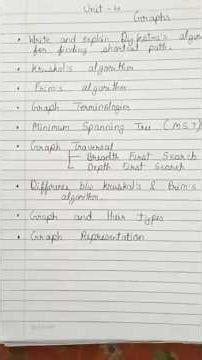 Unit - 4
Graphs
• Write and explain Dijkstra's algor
for finding shortest path.
• Kruskal's algorithm
• Prim's algorithm
• Graph Terminologies
• Minimum Spanning Tree (MST)
• Graph Traversal
Breadth First Search
Depth First Search
• Difference b/w kruskal's & Prim's
algorithm.
• Graph and their types
• Graph Representation